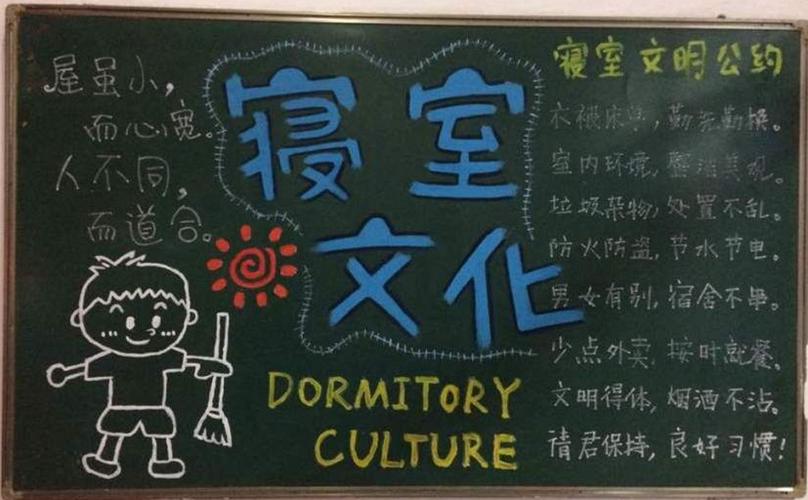 屋虽小，
而心宽。
人不同，
而道合。
寝室
文化
DORMITORY
CULTURE
寝室文明公约
衣被床单，勤洗勤换。
室内环境，整洁美观。
垃圾杂物，处置不乱。
防火防盗，节水节电。
男女有别，宿舍不串。
少点外卖，按时就餐。
文明得体，烟酒不沾。
请君保持，良好习惯！